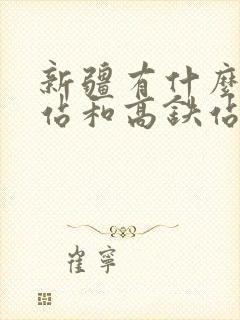 新疆有什麼
佔和高鉄佔
崔寧